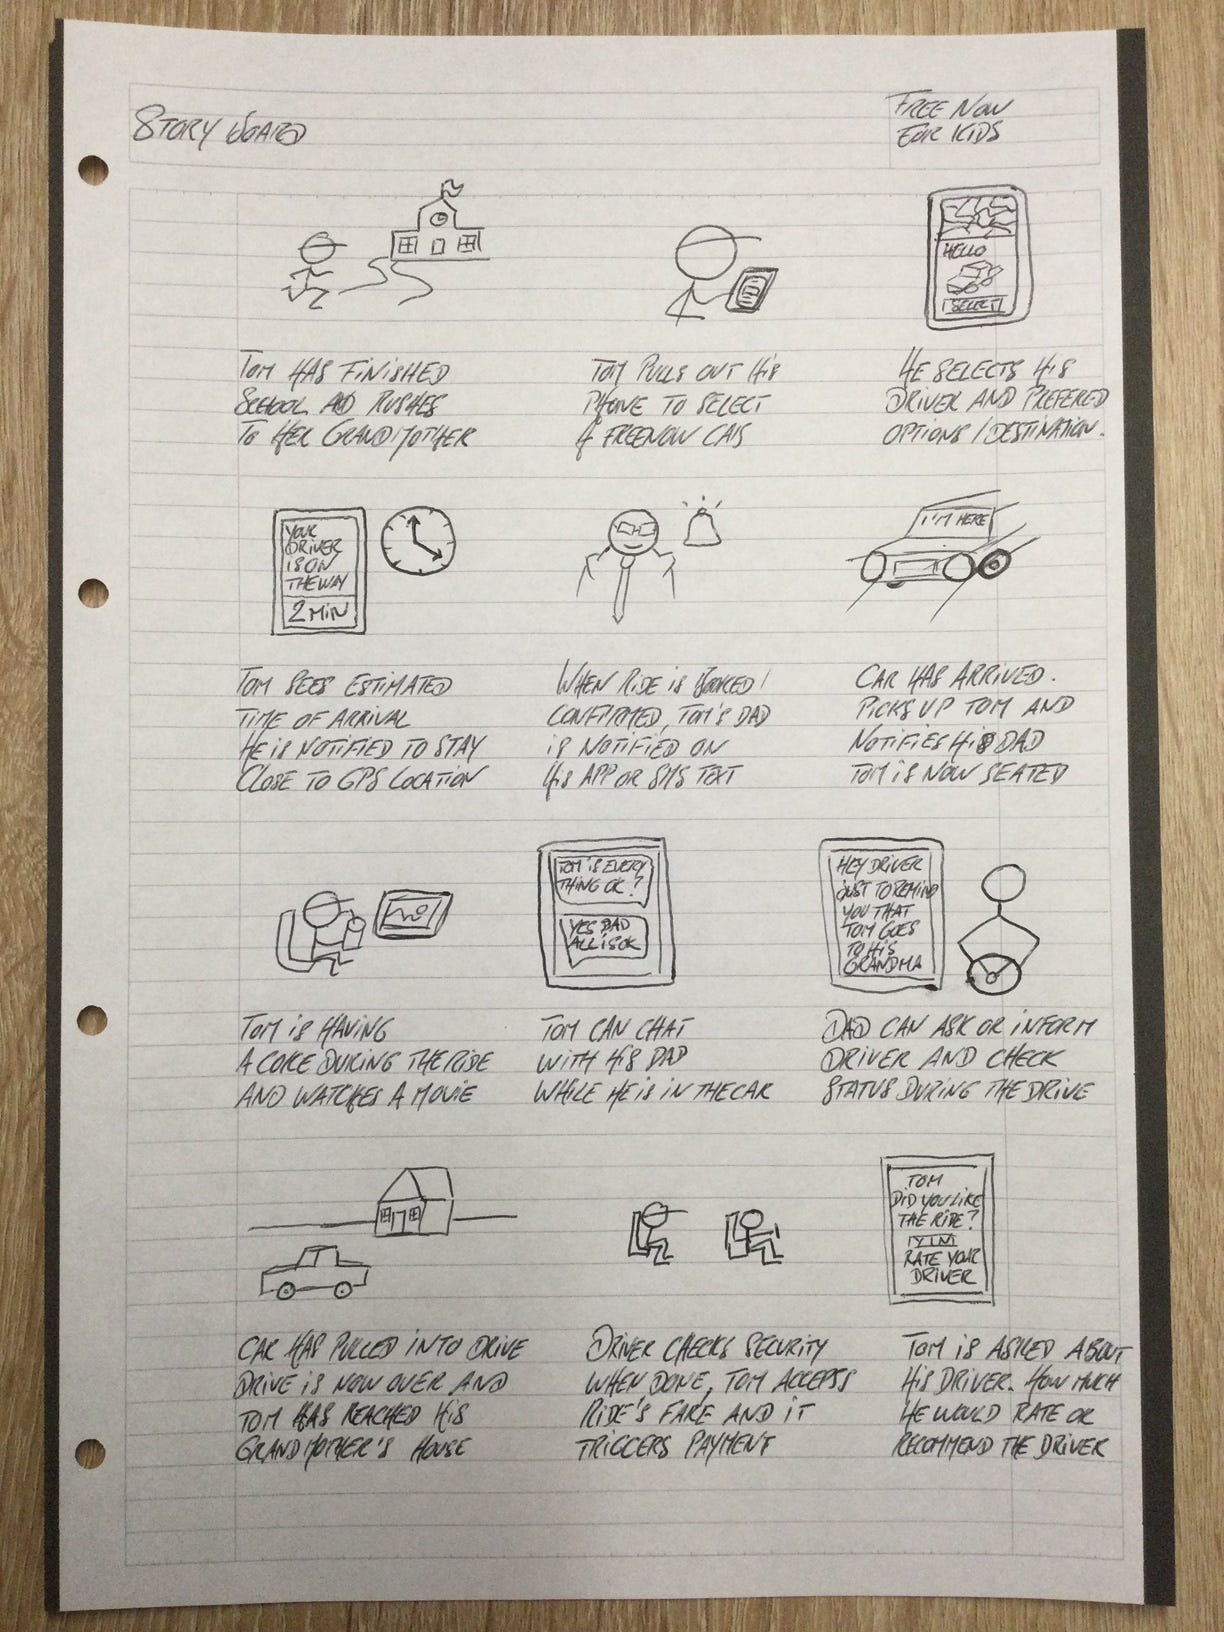 STORY BOARD
FREE NOW
FOR KIDS
HELLO
SELECT
TOM HAS FINISHED
SCHOOL AND RUSHES
TO HER GRANDMOTHER
TOM PULLS OUT HIS
PHONE TO SELECT
A FREENOW CABS
HE SELECTS HIS
DRIVER AND PREFERED
OPTIONS / DESTINATION.
YOUR
DRIVER
IS ON
THE WAY
2 MIN
I'M HERE
TOM SEES ESTIMATED
TIME OF ARRIVAL
HE IS NOTIFIED TO STAY
CLOSE TO GPS LOCATION
WHEN RIDE IS BOOKED /
CONFIRMED, TOM'S DAD
IS NOTIFIED ON
HIS APP OR SMS TEXT
CAR HAS ARRIVED.
PICKS UP TOM AND
NOTIFIES HIS DAD
TOM IS NOW SEATED
TOM IS EVERY
THING OK?
YES DAD
ALL IS OK
HEY DRIVER
JUST TO REMIND
YOU THAT
TOM GOES
TO HIS
GRANDMA
TOM IS HAVING
A COKE DURING THE RIDE
AND WATCHES A MOVIE
TOM CAN CHAT
WITH HIS DAD
WHILE HE IS IN THE CAR
DAD CAN ASK OR INFORM
DRIVER AND CHECK
STATUS DURING THE DRIVE
TOM
DID YOU LIKE
THE RIDE?
Y | N
RATE YOUR
DRIVER
CAR HAS PULLED INTO DRIVE
DRIVE IS NOW OVER AND
TOM HAS REACHED HIS
GRANDMOTHER'S HOUSE
DRIVER CHECKS SECURITY
WHEN DONE, TOM ACCEPTS
RIDE'S FARE AND IT
TRIGGERS PAYMENT
TOM IS ASKED ABOUT
HIS DRIVER. HOW MUCH
HE WOULD RATE OR
RECOMMEND THE DRIVER